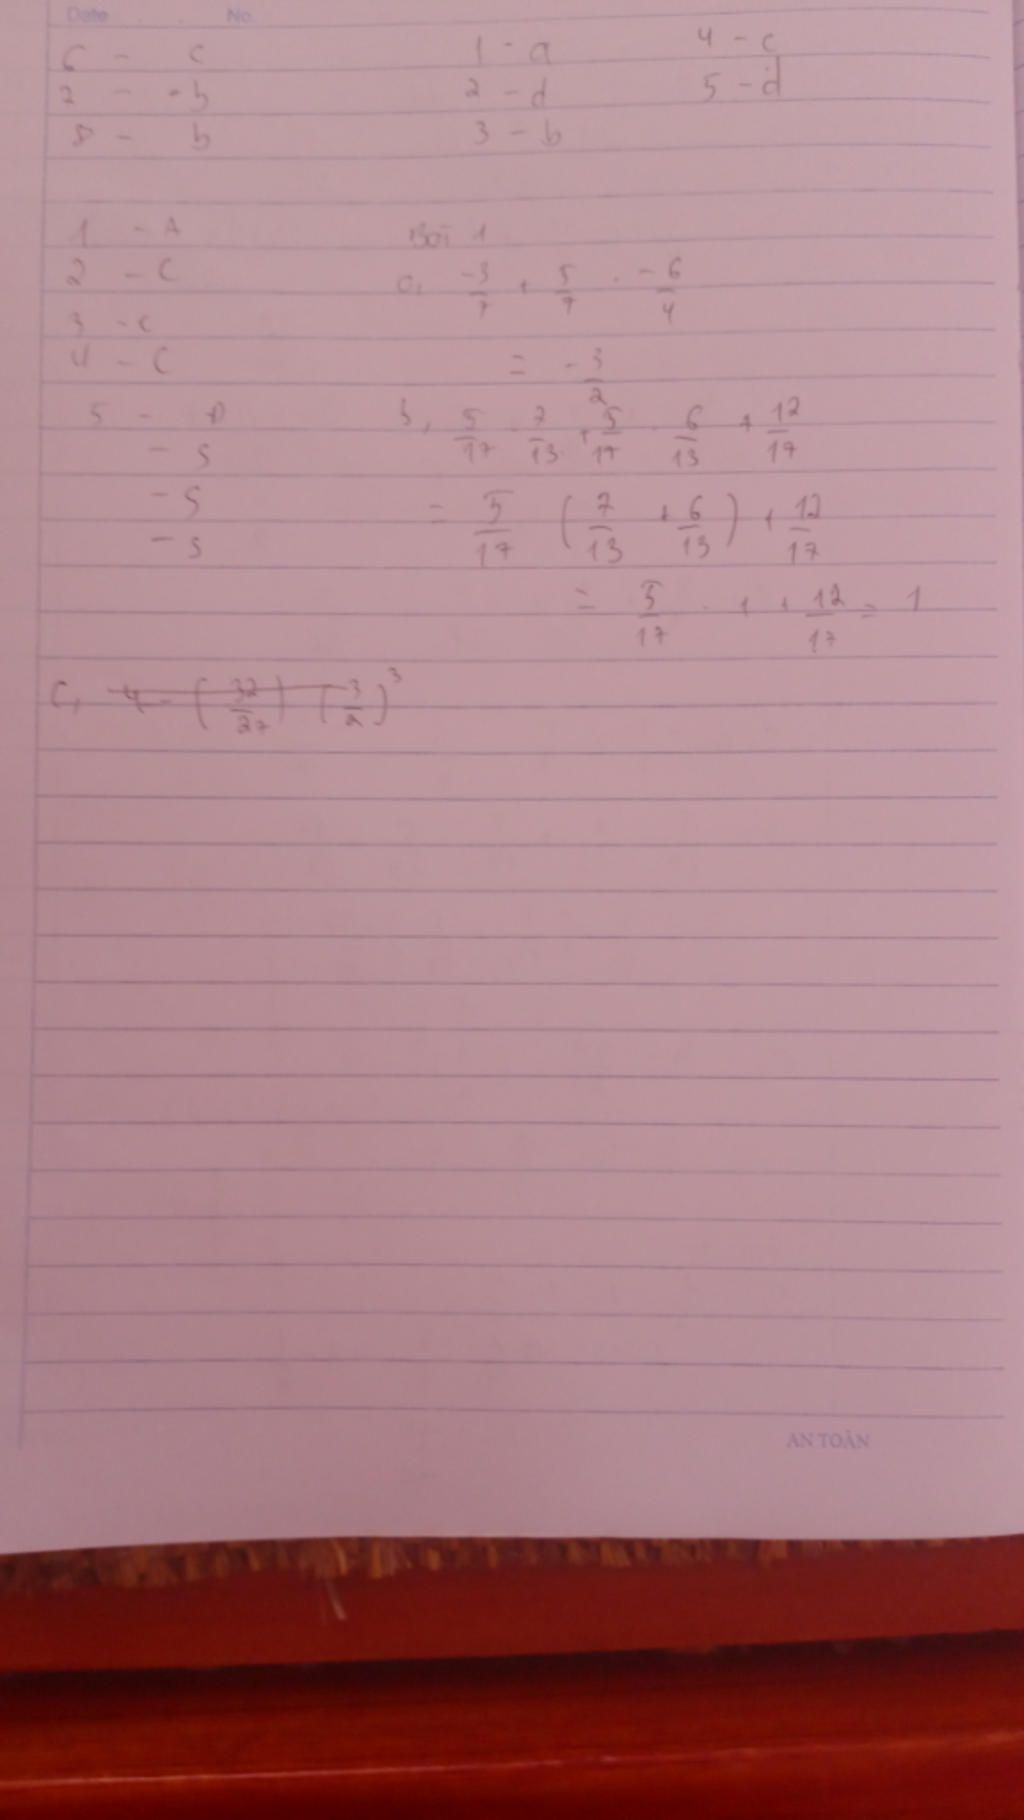 Date No.
6 - c
7 - b
8 - b
1 - a
2 - d
3 - b
4 - c
5 - d
1 - A
2 - C
3 - c
4 - C
5 - D
- S
- S
- S
Bài 1
a, -3/7 + 5/7 . -6/4
= -3/2
b, 5/17 . 7/13 + 5/17 . 6/13 + 12/17
= 5/17 (7/13 + 6/13) + 12/17
= 5/17 . 1 + 12/17 = 1
c, 4 - (32/27) (3/2)^3
AN TOÀN